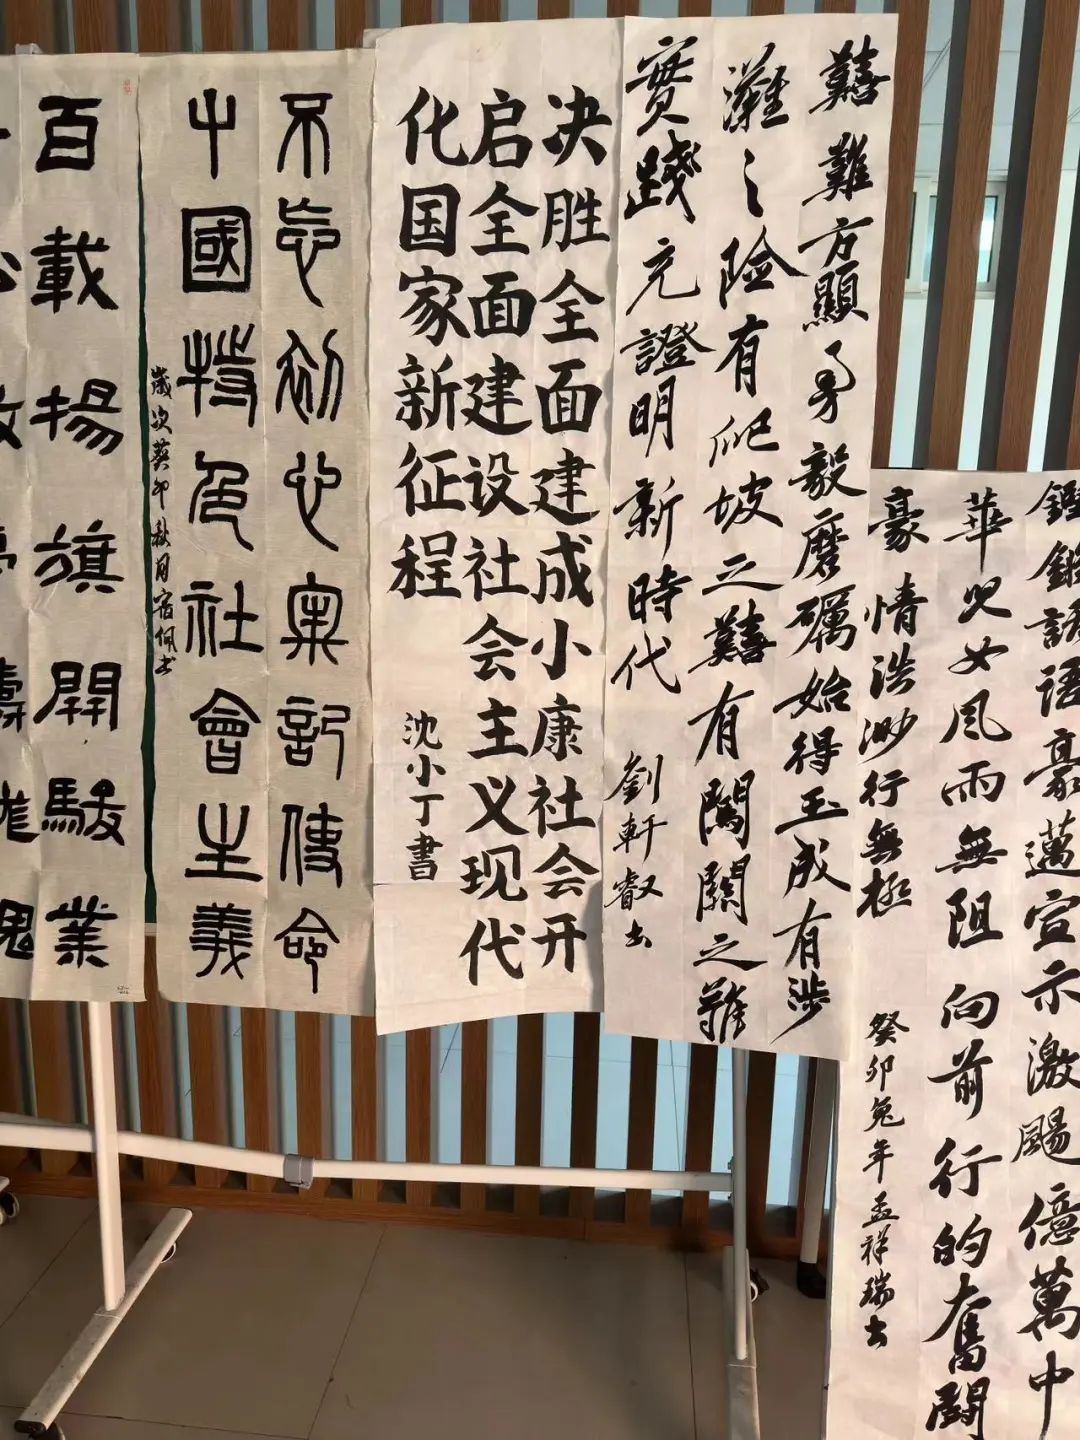 鏗鏘話語豪邁宣示激颺億萬中
華兒女風雨無阻向前行的奮鬪
豪情浩渺行無極
癸卯兔年孟祥瑞书
囏難方顯勇毅磨礪始得玉成有涉
灘之險有爬坡之囏有闖關之難
實踐充證明新時代
劉軒叡书
决胜全面建成小康社会开
启全面建设社会主义现代
化国家新征程
沈小丁書
不忘初心牢記使命
中國特色社會主義
歲次癸卯秋月宿佩书
百載揚旗開駿業